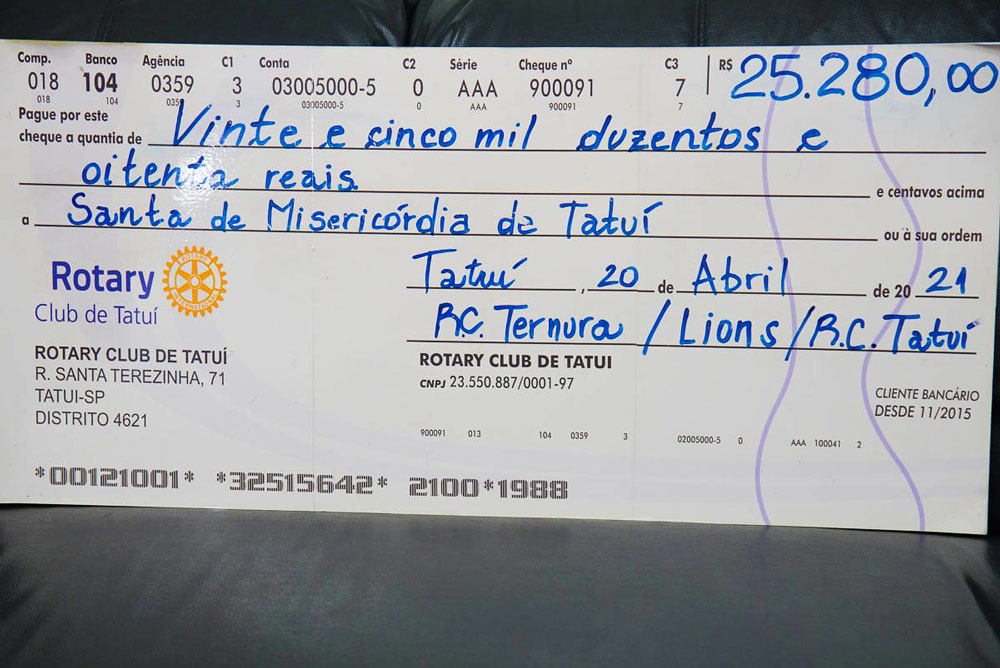 Comp. Banco Agência C1 Conta C2 Série Cheque nº C3 R$ 25.280,00
018 104 0359 3 03005000-5 0 AAA 900091 7
018 104 0359 3 03005000-5 0 AAA 900091 7
Pague por este
cheque a quantia de Vinte e cinco mil duzentos e
oitenta reais. e centavos acima
a Santa de Misericórdia de Tatuí ou à sua ordem
Tatuí , 20 de Abril de 20 21
R.C. Ternura / Lions / R.C. Tatuí
ROTARY
INTERNATIONAL
Rotary
Club de Tatuí
ROTARY CLUB DE TATUÍ
R. SANTA TEREZINHA, 71
TATUI-SP
DISTRITO 4621
ROTARY CLUB DE TATUI
CNPJ 23.550.887/0001-97
CLIENTE BANCÁRIO
DESDE 11/2015
900091 013 104 0359 3 02005000-5 0 AAA 100041 2
*00121001* *32515642* 2100*1988